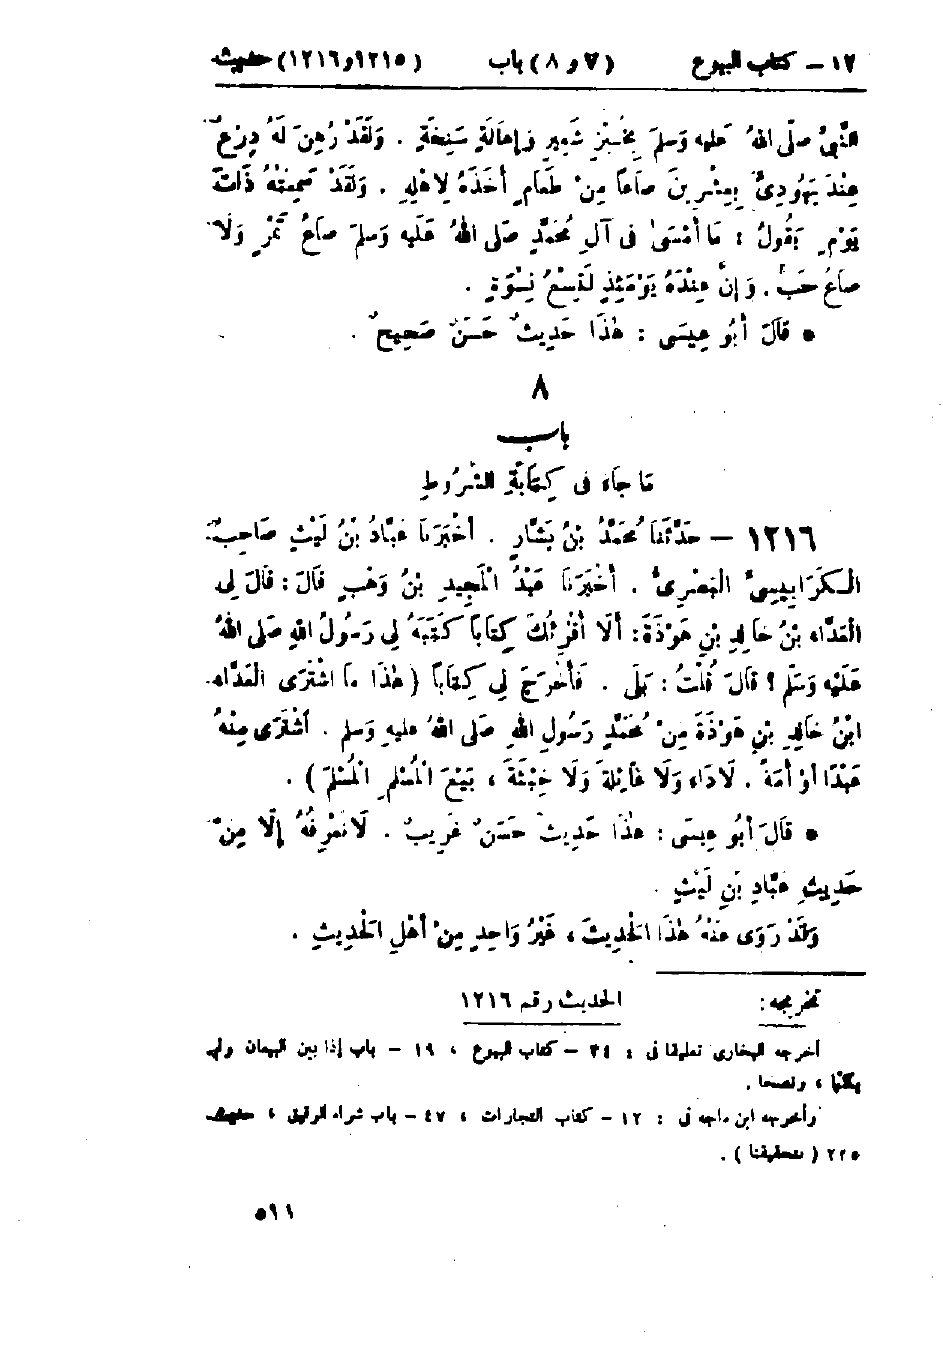 ١٢ – كتاب البيوع (٧ و ٨) باب (١٢١٥ و ١٢١٦) حديث
النَّبِيُّ صلّى اللهُ عليه وَسلمَ بِخُبْزِ شَعِيرٍ وَإِهَالَةٍ سَنِخَةٍ . وَلَقَدْ رُهِنَ لَهُ دِرْعٌ
عِنْدَ يَهُودِىٍّ بِعِشْرِينَ صَاعًا مِنْ طَعَامٍ أَخَذَهُ لِأَهْلِهِ . وَلَقَدْ سَمِعْتُهُ ذَاتَ
يَوْمٍ يَقُولُ : مَا أَمْسَىٰ فى آلِ مُحَمَّدٍ صَلى اللهُ عَلَيه وَسلمَ صَاعُ تَمْرٍ وَلَا
صَاعُ حَبٍّ . وَإِنَّ عِنْدَهُ يَوْمَئِذٍ لَتِسْعُ نِسْوَةٍ .
• قَالَ أَبُو عِيسَى : هٰذَا حَدِيثٌ حَسَنٌ صَحِيحٌ .
٨
باب
مَا جَاءَ فى كِتَابَةِ الشُّرُوطِ
١٢١٦ – حَدَّثَنَا مُحَمَّدُ بْنُ بَشَّارٍ . أَخْبَرَنَا عَبَّادُ بْنُ لَيْثٍ صَاحِبُ
الكَرَابِيسِىِّ البَصْرِىُّ . أَخْبَرَنَا عَبْدُ الْمَجِيدِ بْنُ وَهْبٍ قَالَ : قَالَ لِى
الْعَدَّاءُ بْنُ خَالِدِ بْنِ هَوْذَةَ : أَلَا أُقْرِئُكَ كِتَابًا كَتَبَهُ لِى رَسُولُ اللهِ صَلى اللهُ
عَلَيْهِ وَسَلَّم ؟ قالَ قُلْتُ : بَلَى . فَأَخْرَجَ لِى كِتَابًا ( هٰذَا مَا اشْتَرَى الْعَدَّاءُ
ابْنُ خَالِدِ بْنِ هَوْذَةَ مِنْ مُحَمَّدٍ رَسُولِ اللهِ صَلى اللهُ عليهِ وَسلم . اشْتَرَى مِنْهُ
عَبْدًا أَوْ أَمَةً . لَادَاءَ وَلَا غَائِلَةَ وَلَا خِبْثَةَ ، بَيْعَ الْمُسْلِمِ الْمُسْلِمَ ) .
• قَالَ أَبُو عِيسَى : هٰذَا حَدِيثٌ حَسَنٌ غَرِيبٌ . لَا نَعْرِفُهُ إِلَّا مِنْ
حَدِيثِ عَبَّادِ بْنِ لَيْثٍ .
وَقَدْ رَوَى عَنْهُ هٰذَا الْحَدِيثَ ، غَيْرُ وَاحِدٍ مِنْ أَهْلِ الْحَدِيثِ .
تخريجه : الحديث رقم ١٢١٦
أخرجه البخارى تعليقا فى : ٣٤ – كتاب البيوع ، ١٩ – باب إذا بين البيعان ولم
يكتما ، ونصحا .
وأخرجه ابن ماجه فى : ١٢ – كتاب التجارات ، ٤٧ – باب شراء الرقيق ، حديث
٢٢٥ ( بتحقيقنا ) .
٥١١